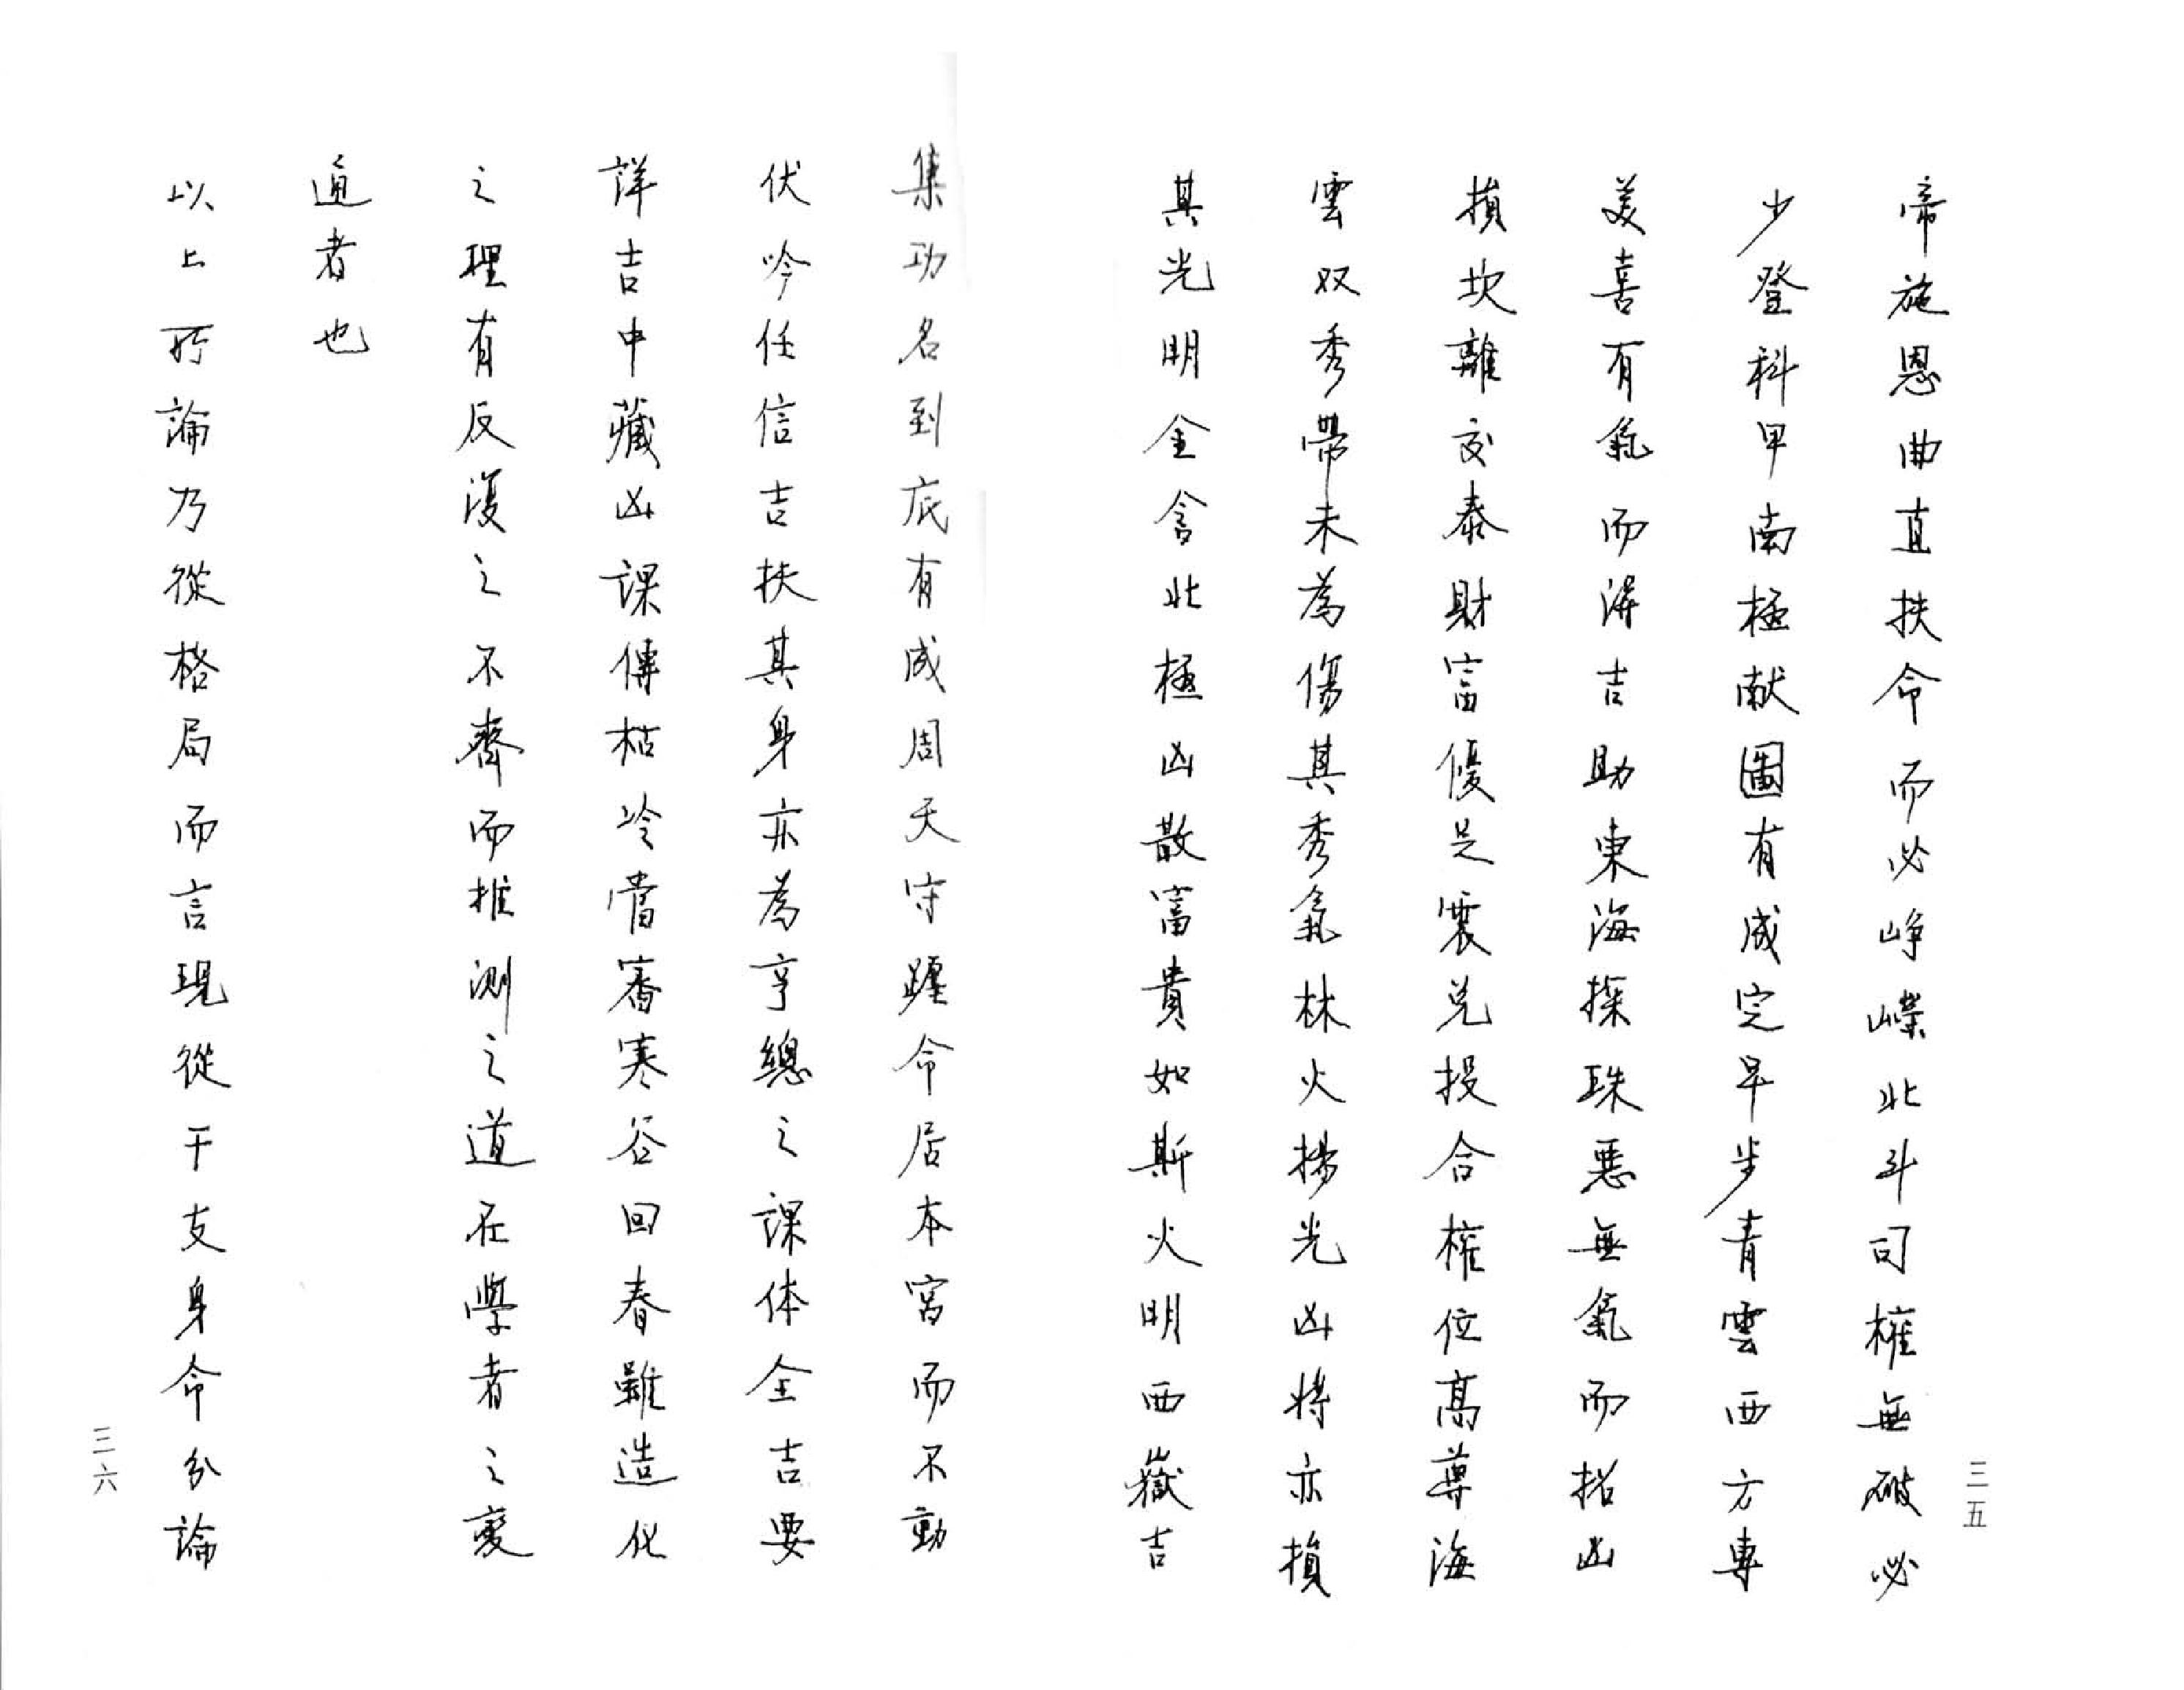 帝施恩曲直扶命而必崢嶸北斗司權無破必
少登科甲南極献圖有成定早步青雲西方專
美喜有氣而得吉助東海探珠惡無氣而招凶
損坎離交泰財富優足震兌投合權位高尊海
雲双秀帶未為傷其秀氣林火揚光凶將亦損
其光明金含北極凶散富貴如斯火明西嶽吉
三五
集功名到底有成周天守躔命居本宮而不動
伏吟任信吉扶其身亦為亨總之課体全吉要
詳吉中藏凶課傳枯冷當審寒谷回春雖造化
之理有反復之不齊而推測之道在學者之變
通者也
以上所論乃從格局而言現從干支身命分論
三六